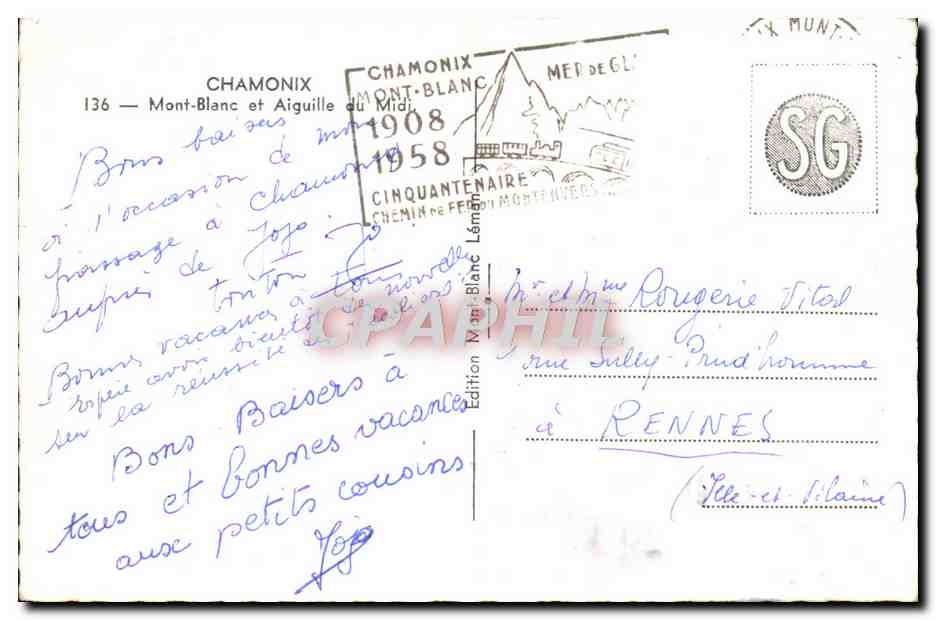 CHAMONIX
136 — Mont-Blanc et Aiguille du Midi
CHAMONIX
MONT-BLANC
1908
1958
CINQUANTENAIRE
CHEMIN DE FER DU MONTENVERS
MER DE GL
X MONT
SG
Bons baisers
à l'occasion de mon
passage à Chamonix
auprès de Jojo.
tonton Jo
Bonnes vacances à tous
espère avoir bientôt de nouvelles
sur la réussite
Bons Baisers à
tous et bonnes vacances
aux petits cousins
Jojo
Edition Mont-Blanc Léman
Mr et Mme Rougerie Vital
rue Sully-Prud'homme
à RENNES
(Ille-et-Vilaine)
CPAPHIL